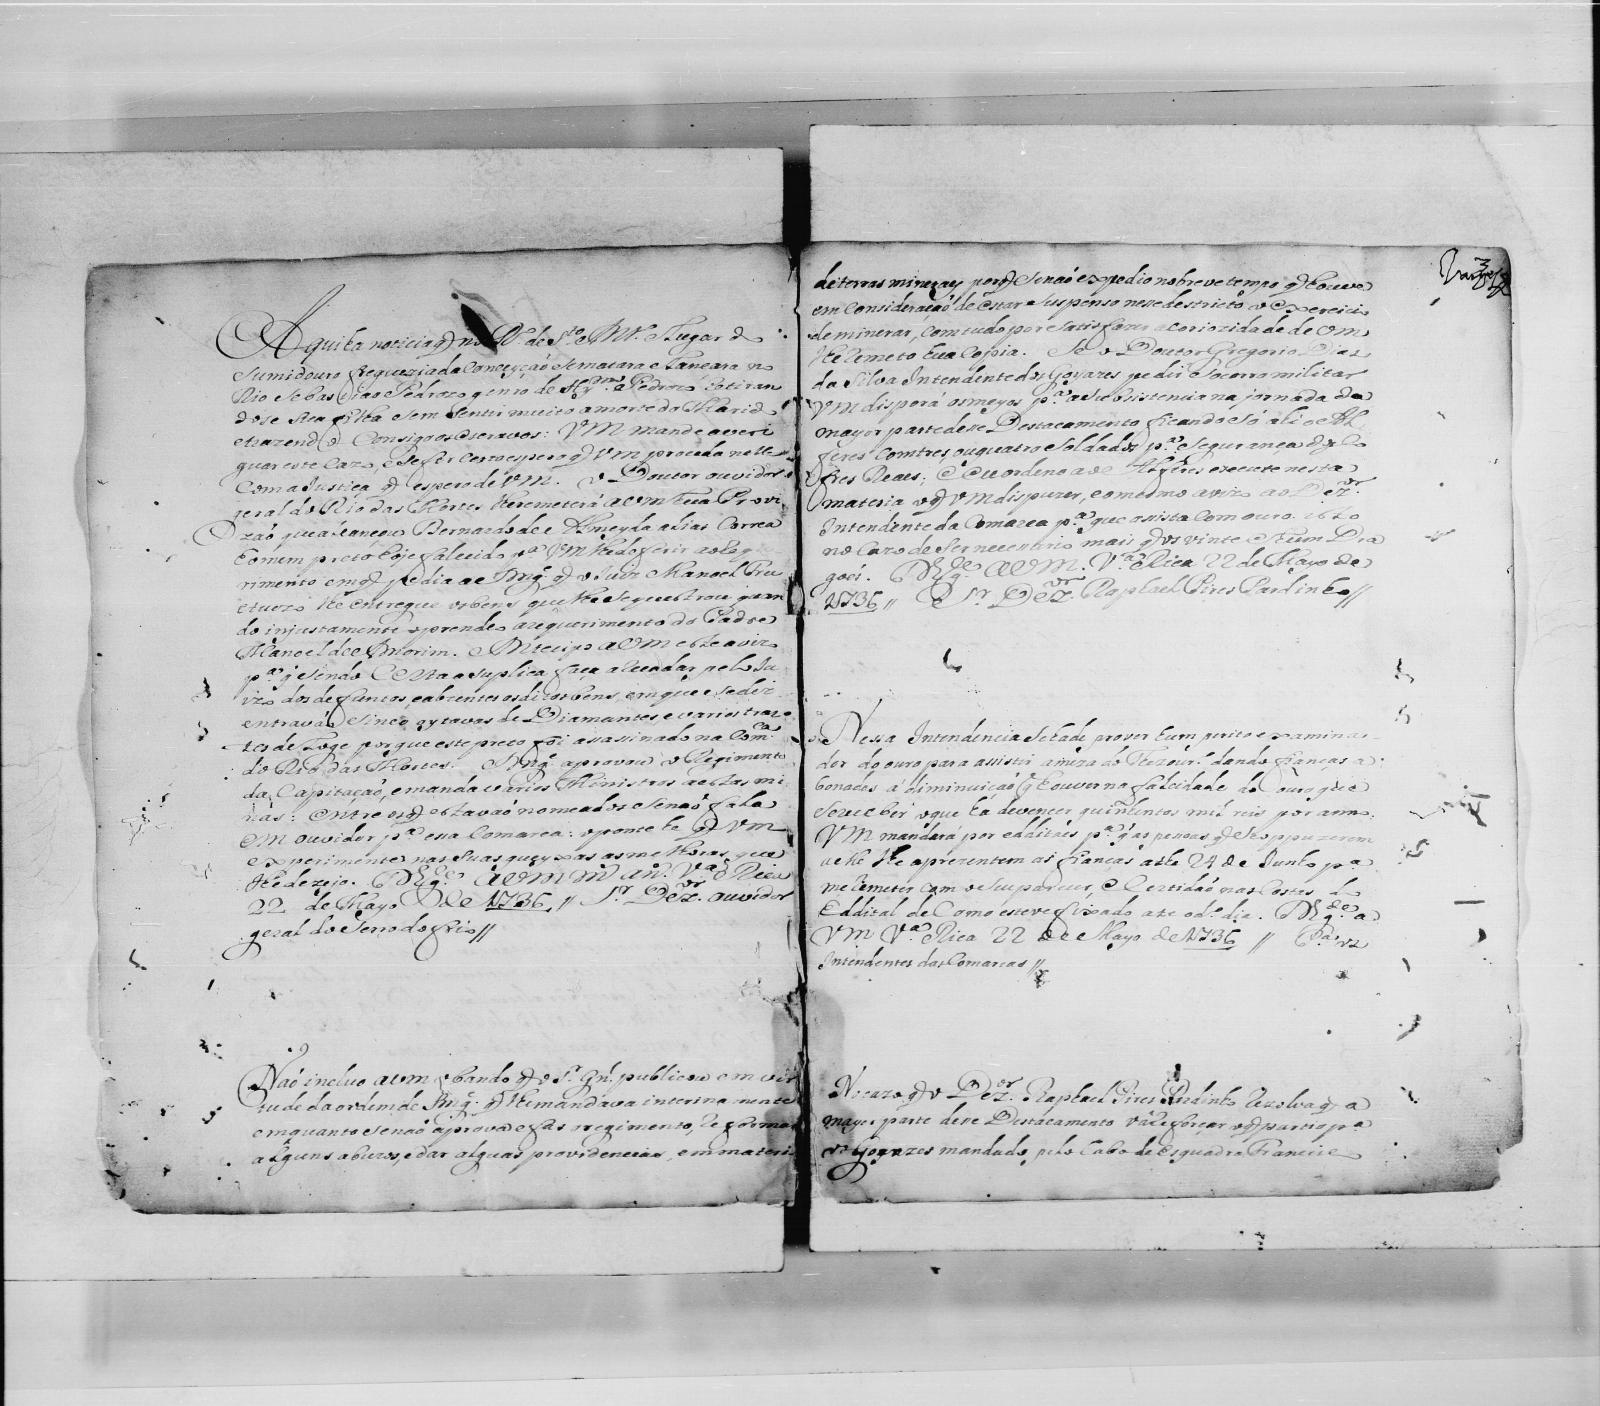 Aqui ha noticia q̃ no Rº. de Stº. Ant. Lugar do
Sumidouro freguezia da Conceyçaõ se matara e lançara no
Rio Sebastiaõ Pedrozo genro de Pedrozo retiran
dose sua filha sem sentir muito a morte do Marido
e trazendo consigo os escravos: VM mande averi
guar este cazo, e se for certo espero q̃ VM proceda nelle
com a justiça q̃ espero de VM. O Doutor ouvidor
geral do Rio das Mortes lhe remeterá a VM hua Provi
zaõ que alcançou Bernardo de Almeyda alias Correa
homem preto hoje falecido pª VM lhe deferir ao Reque
rimento em q̃ pedia a S. Mg.e q̃ o Juis Manoel Freu
etuozo lhe entregue os bens que lhe sequestrou quan
do injustamente o prendeo a requerimento do Padre
Manoel de Amorim. Antecipo a VM este avizo
pª q̃ sendo certa a suplica faça arrecadar pelo Ju
izo dos defuntos e abzentes os ditos bens, em que se diz
entravaõ sinco oytavas de Diamantes e varios tras
tes de Loge porque este preto foi assassinado na Comcª
do Rio das Mortes. S. Mg.e aprovou o Regimento
da Capitaçaõ, e manda varios Ministros a estas mi
nas: entre os q̃ estavaõ nomeados senaõ fala
em ouvidor pª essa Comarca: o ponto he q̃ VM
experimente nas suas queyxas as melhoras, que
lhe dezejo. Ds. g.de a VM m. an. Vª Rica
22 de Mayo de 1736 // Sr. Dez.or ouvidor
geral do Serro do frio //
Naõ incluo a VM o bando q̃ o Sr. Gn.l publicou em vir
tude da ordem de S. Mg.e q̃ lhe mandava interina mente
em quanto senaõ aprova e faz regimento, reformar
alguns abuzos, e dar alguas providencias, em materia
de terras mineraes porq̃ senaõ expedio no breve tempo q̃ houve
em consideraçaõ de estar suspenso nesse destricto o exercicio
de minerar, comtudo por satisfazer a coriozidade de VM
lhe remeto hua copia. Se o Doutor Gregorio Dias
da Silva Intendente dos Goyazes pedir socorro militar
VM disporá os meyos pª a subsistencia na jornada da
mayor parte desse Destacamento ficando só ali o Al
feres com tres ou quatro soldados pª a segurança dos Co
fres Reaes; e eu ordeno ao Alferes execute nesta
materia o q̃ VM dispuzer, e o mesmo avizo ao Dez.or
Intendente da Comarca pª que assista com ouro. isto
no cazo de ser necessario mais q̃ os vinte e hum Dra
goẽs. Ds. g.de a VM. Vª Rica 22 de Mayo de
1736 // Sr. Dez.or Raphael Pires Pardinho //
Nessa Intendencia se hade prover hum perito examina
dor do ouro para assistir a meza do Thezour.º dando fianças a
bonadas á diminuiçaõ q̃ houver na falcidade do ouro que
se receber, o que ha de vencer quinhentos mil reis por anno.
VM mandará por edditaes pª q̃ as pessoas q̃ se oppuzerem
a elle lhe aprezentem as fianças athe 24 de Junho pª
me remeter com o seu parecer, e Certidaõ nas Costas do
Eddital de Como esteve fixado ate o dº dia. Ds. g.de a
VM Vª Rica 22 de Mayo de 1736 // Pª os
Intendentes das Comarcas //
No cazo q̃ o Dez.or Raphael Pires Pardinho rezolva q̃ a
mayor parte desse Destacamento vá reforçar o q̃ partio pª
os Goyazes mandado pelo Cabo de Esquadra Francisco